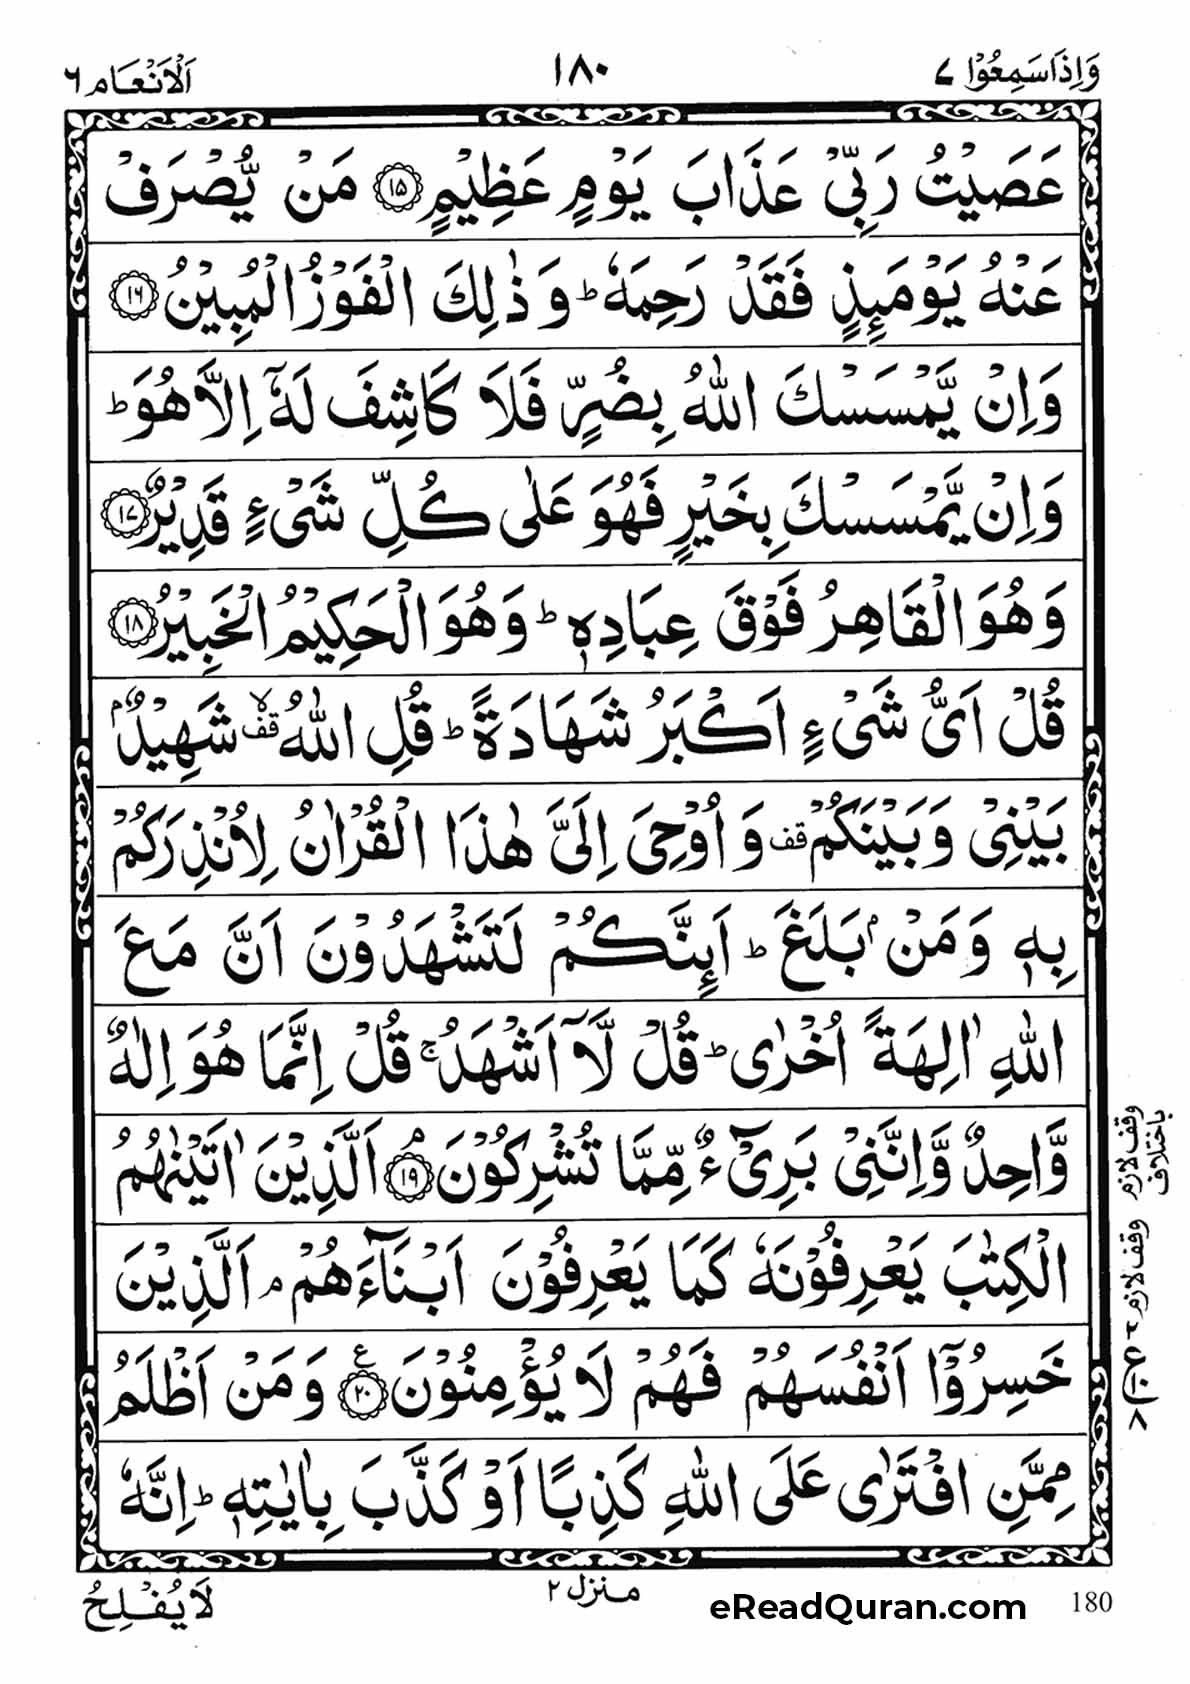 وَاِذَاسَمِعُوْا ٧ ١٨٠ اَلْاَنْعَام ٦
عَصَيْتُ رَبِّيْ عَذَابَ يَوْمٍ عَظِيْمٍ ١٥ مَنْ يُّصْرَفْ
عَنْهُ يَوْمَئِذٍ فَقَدْ رَحِمَهٗ ط وَذٰلِكَ الْفَوْزُ الْمُبِيْنُ ١٦
وَاِنْ يَّمْسَسْكَ اللّٰهُ بِضُرٍّ فَلَا كَاشِفَ لَهٗٓ اِلَّا هُوَ ط
وَاِنْ يَّمْسَسْكَ بِخَيْرٍ فَهُوَ عَلٰى كُلِّ شَيْءٍ قَدِيْرٌ ١٧
وَهُوَ الْقَاهِرُ فَوْقَ عِبَادِهٖ ط وَهُوَ الْحَكِيْمُ الْخَبِيْرُ ١٨
قُلْ اَيُّ شَيْءٍ اَكْبَرُ شَهَادَةً ط قُلِ اللّٰهُ لا قف شَهِيْدٌۢ
بَيْنِيْ وَبَيْنَكُمْ قف وَاُوْحِيَ اِلَيَّ هٰذَا الْقُرْاٰنُ لِاُنْذِرَكُمْ
بِهٖ وَمَنْۢ بَلَغَ ط اَئِنَّكُمْ لَتَشْهَدُوْنَ اَنَّ مَعَ
اللّٰهِ اٰلِهَةً اُخْرٰى ط قُلْ لَّآ اَشْهَدُ ج قُلْ اِنَّمَا هُوَ اِلٰهٌ
وَّاحِدٌ وَّاِنَّنِيْ بَرِيْٓءٌ مِّمَّا تُشْرِكُوْنَ م ١٩ اَلَّذِيْنَ اٰتَيْنٰهُمُ
الْكِتٰبَ يَعْرِفُوْنَهٗ كَمَا يَعْرِفُوْنَ اَبْنَآءَهُمْ م اَلَّذِيْنَ
خَسِرُوْٓا اَنْفُسَهُمْ فَهُمْ لَا يُؤْمِنُوْنَ ع ٢٠ وَمَنْ اَظْلَمُ
مِمَّنِ افْتَرٰى عَلَى اللّٰهِ كَذِبًا اَوْ كَذَّبَ بِاٰيٰتِهٖ ط اِنَّهٗ
وقف لازم
باختلاف
وقف لازم
منزل ٢
لَا يُفْلِحُ
eReadQuran.com
180